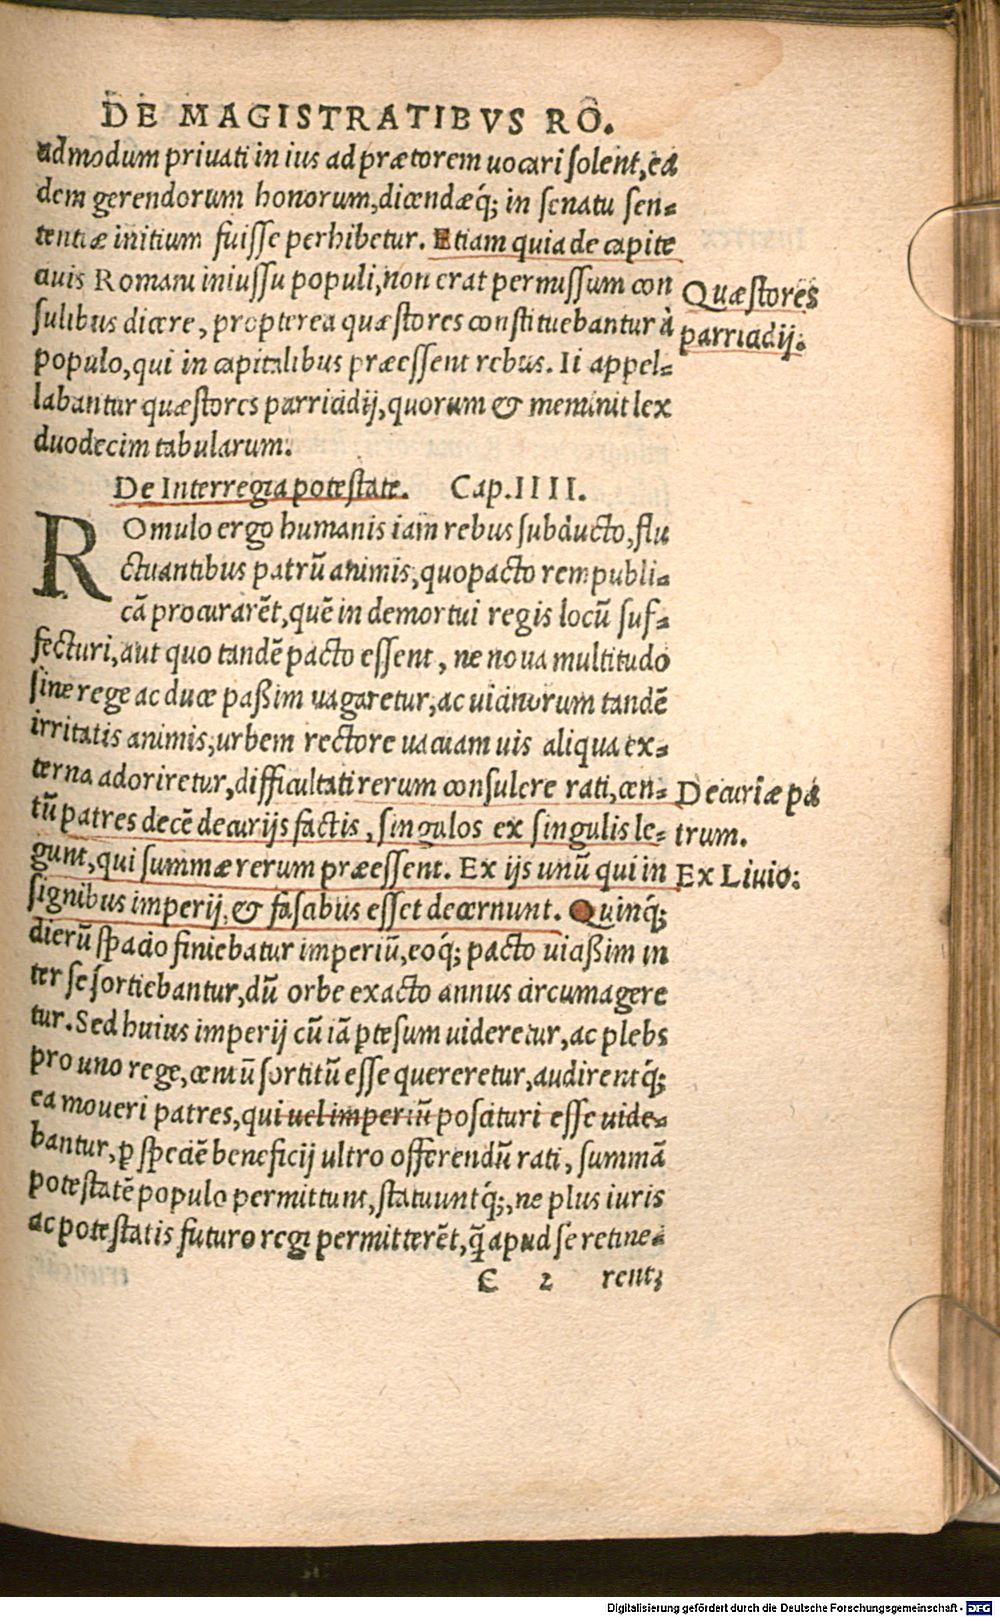 DE MAGISTRATIBVS RO.
admodum priuati in ius ad prætorem uocari solent, ea
dem gerendorum honorum, dicendæq́; in senatu sen-
tentiæ initium fuisse perhibetur. Etiam quia de capite
ciuis Romani iniussu populi, non erat permissum con
sulibus dicere, propterea quæstores constituebantur à
populo, qui in capitalibus præessent rebus. Ii appel-
labantur quæstores parricidij, quorum & meminit lex
duodecim tabularum.
Quæstores
parricidij.
De Interregia potestate. Cap. IIII.
ROmulo ergo humanis iam rebus subducto, flu
ctuantibus patrũ animis, quo pacto rempubli-
cã procurarẽt, quẽ in demortui regis locũ suf-
fecturi, aut quo tandẽ pacto essent, ne noua multitudo
sine rege ac duce paßim uagaretur, ac uicinorum tandẽ
irritatis animis, urbem rectore uacuam uis aliqua ex-
terna adoriretur, difficultati rerum consulere rati, cen-
tũ patres decẽ decurijs factis, singulos ex singulis le-
gunt, qui summæ rerum præessent. Ex ijs unũ qui in
signibus imperij, & fascibus esset decernunt. Quinq́;
dierũ spacio finiebatur imperiũ, eoq́; pacto uicißim in
ter se sortiebantur, dũ orbe exacto annus circumagere
tur. Sed huius imperij cũ iã ptesum uideretur, ac plebs
pro uno rege, centũ sortitũ esse quereretur, audirentq́;
ea moueri patres, qui uel imperiũ poscituri esse uide-
bantur, ꝑ speciẽ beneficij ultro offerendũ rati, summã
potestatẽ populo permittunt, statuuntq́;, ne plus iuris
ac potestatis futuro regi permitterẽt, q̃ apud se retine-
Decuriæ pa
trum.
Ex Liuio:
C 2 rent;
Digitalisierung gefördert durch die Deutsche Forschungsgemeinschaft - DFG